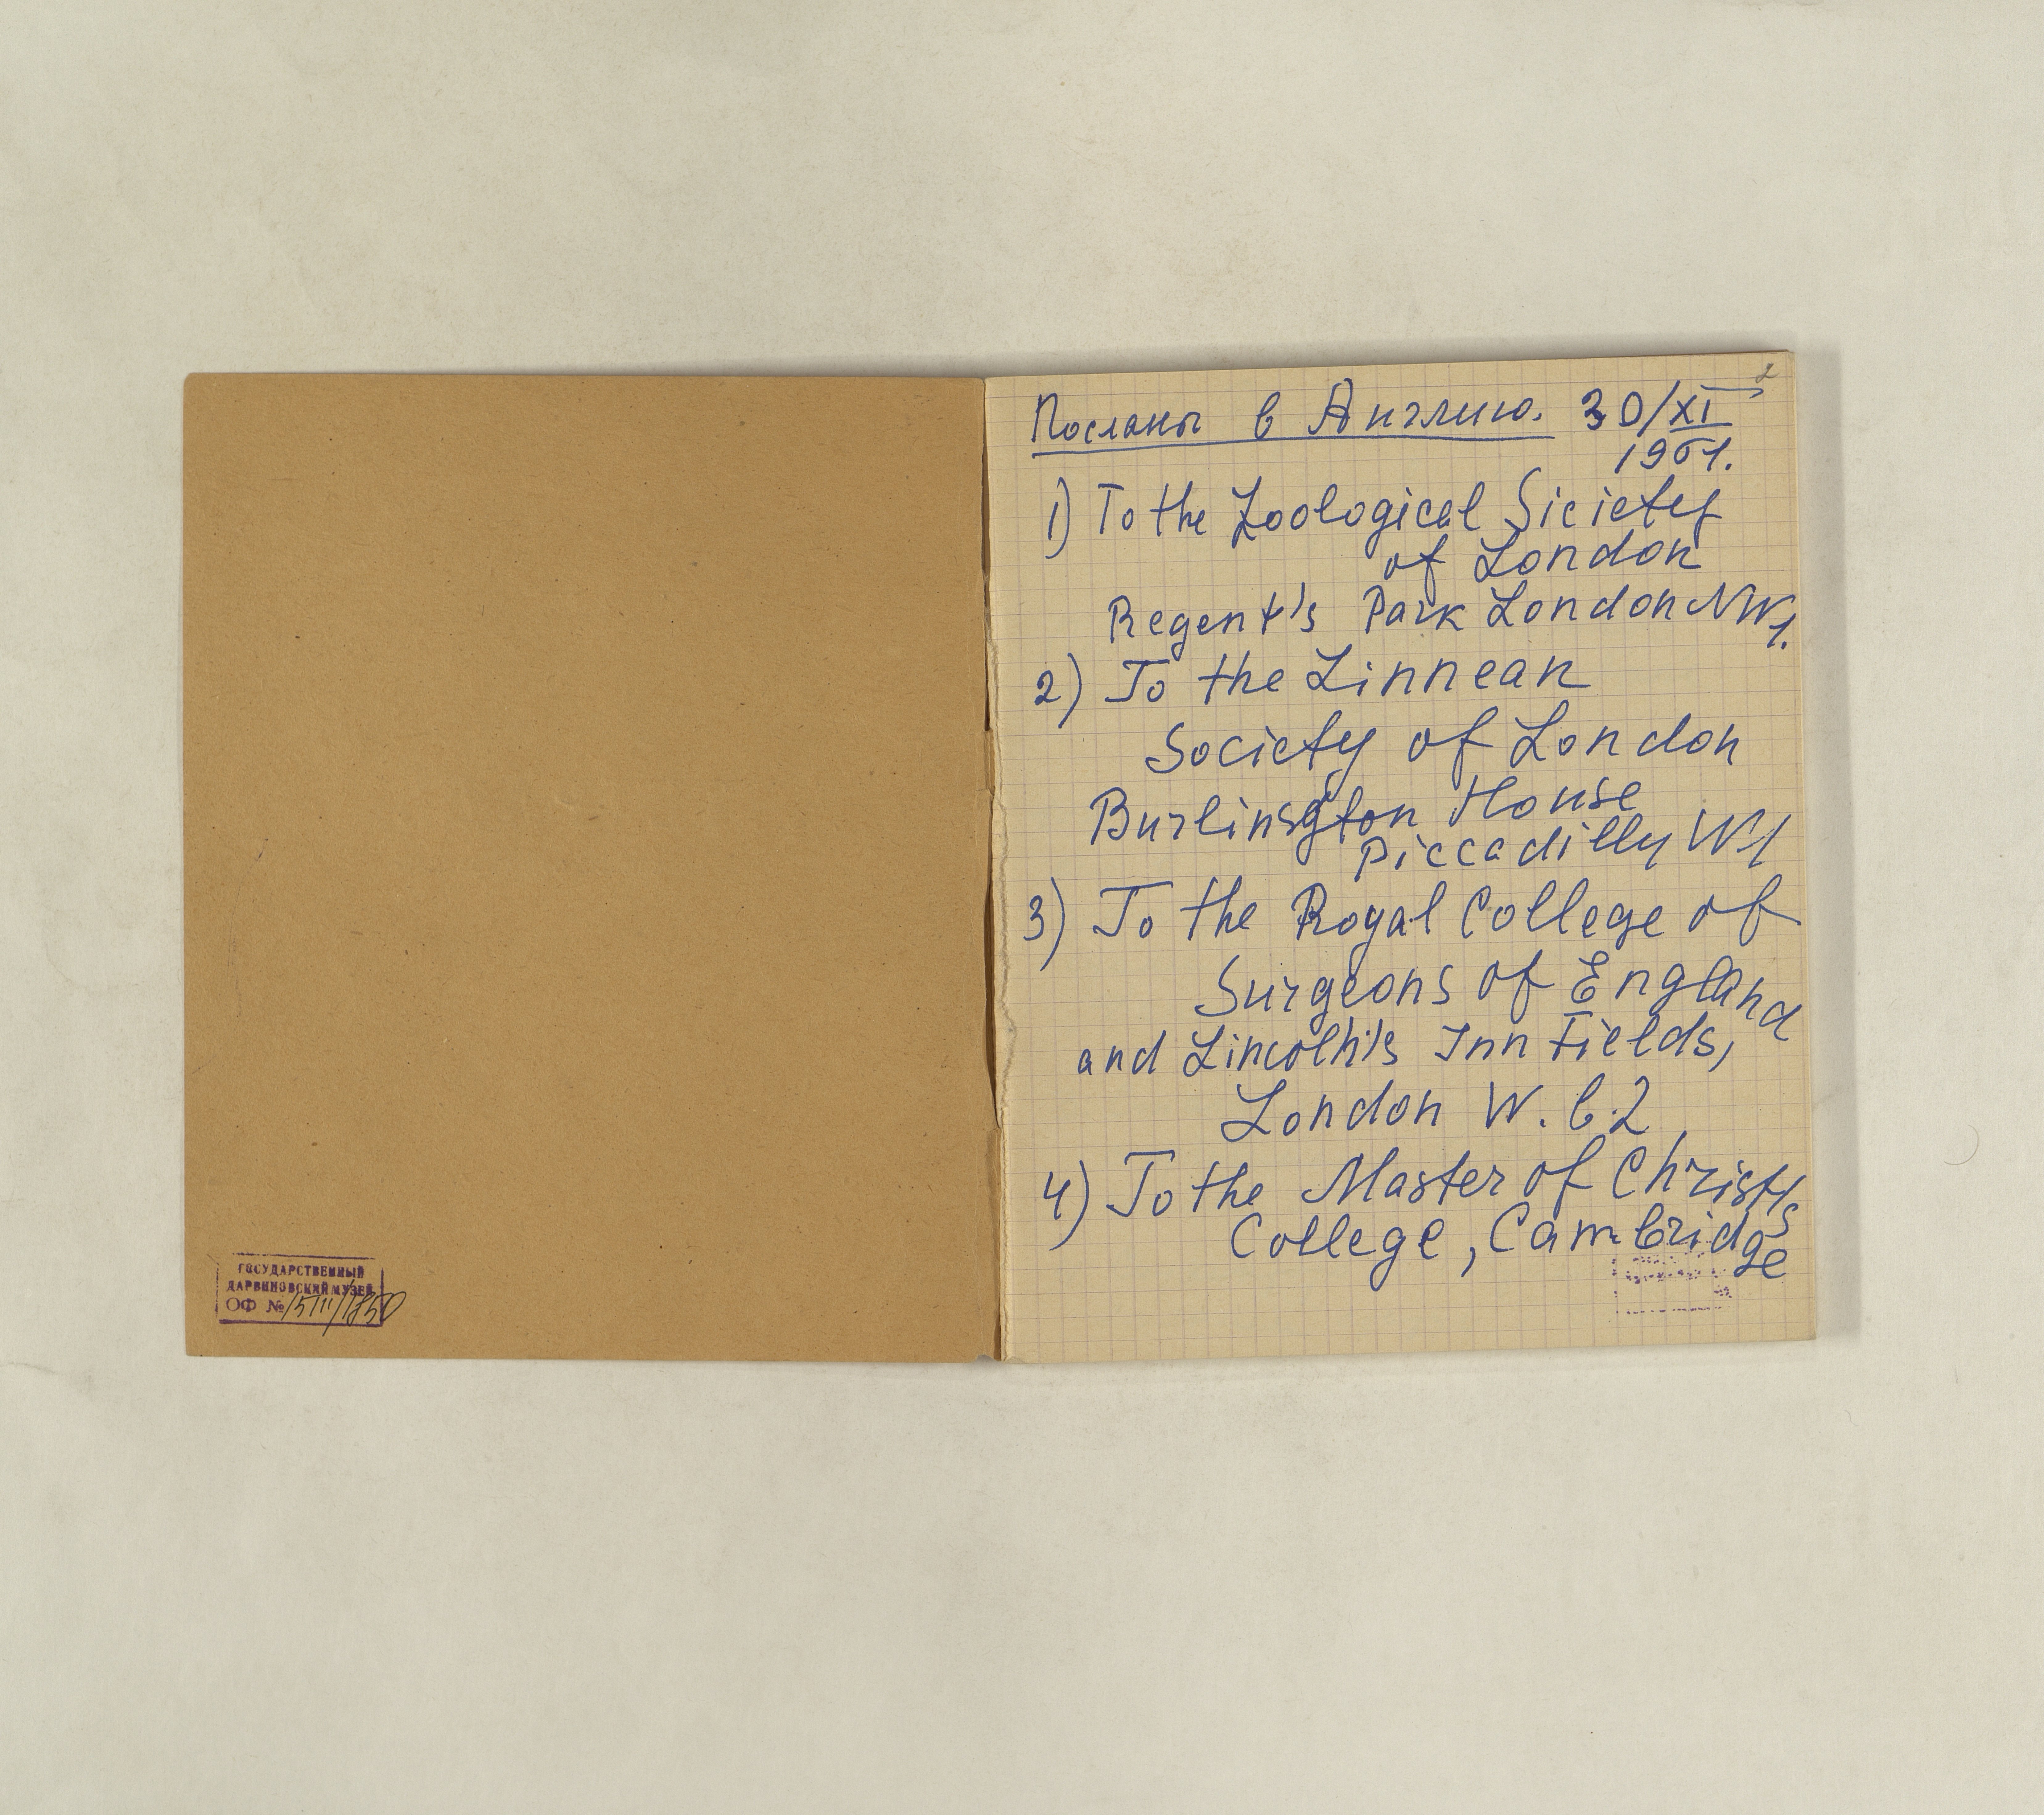 ГОСУДАРСТВЕННЫЙ
ДАРВИНОВСКИЙ МУЗЕЙ
ОФ №
2
Посланы в Англию. 30/XI
1961.
1) To the Zoological Siciety
of London
Regent's Park London NW1.
2) To the Linnean
Society of London
Burlinsgton House
Piccadilly W1
3) To the Royal College of
Surgeons of England
and Lincolh's Inn Fields,
London W.C.2
4) To the Master of Christ's
College, Cambridge